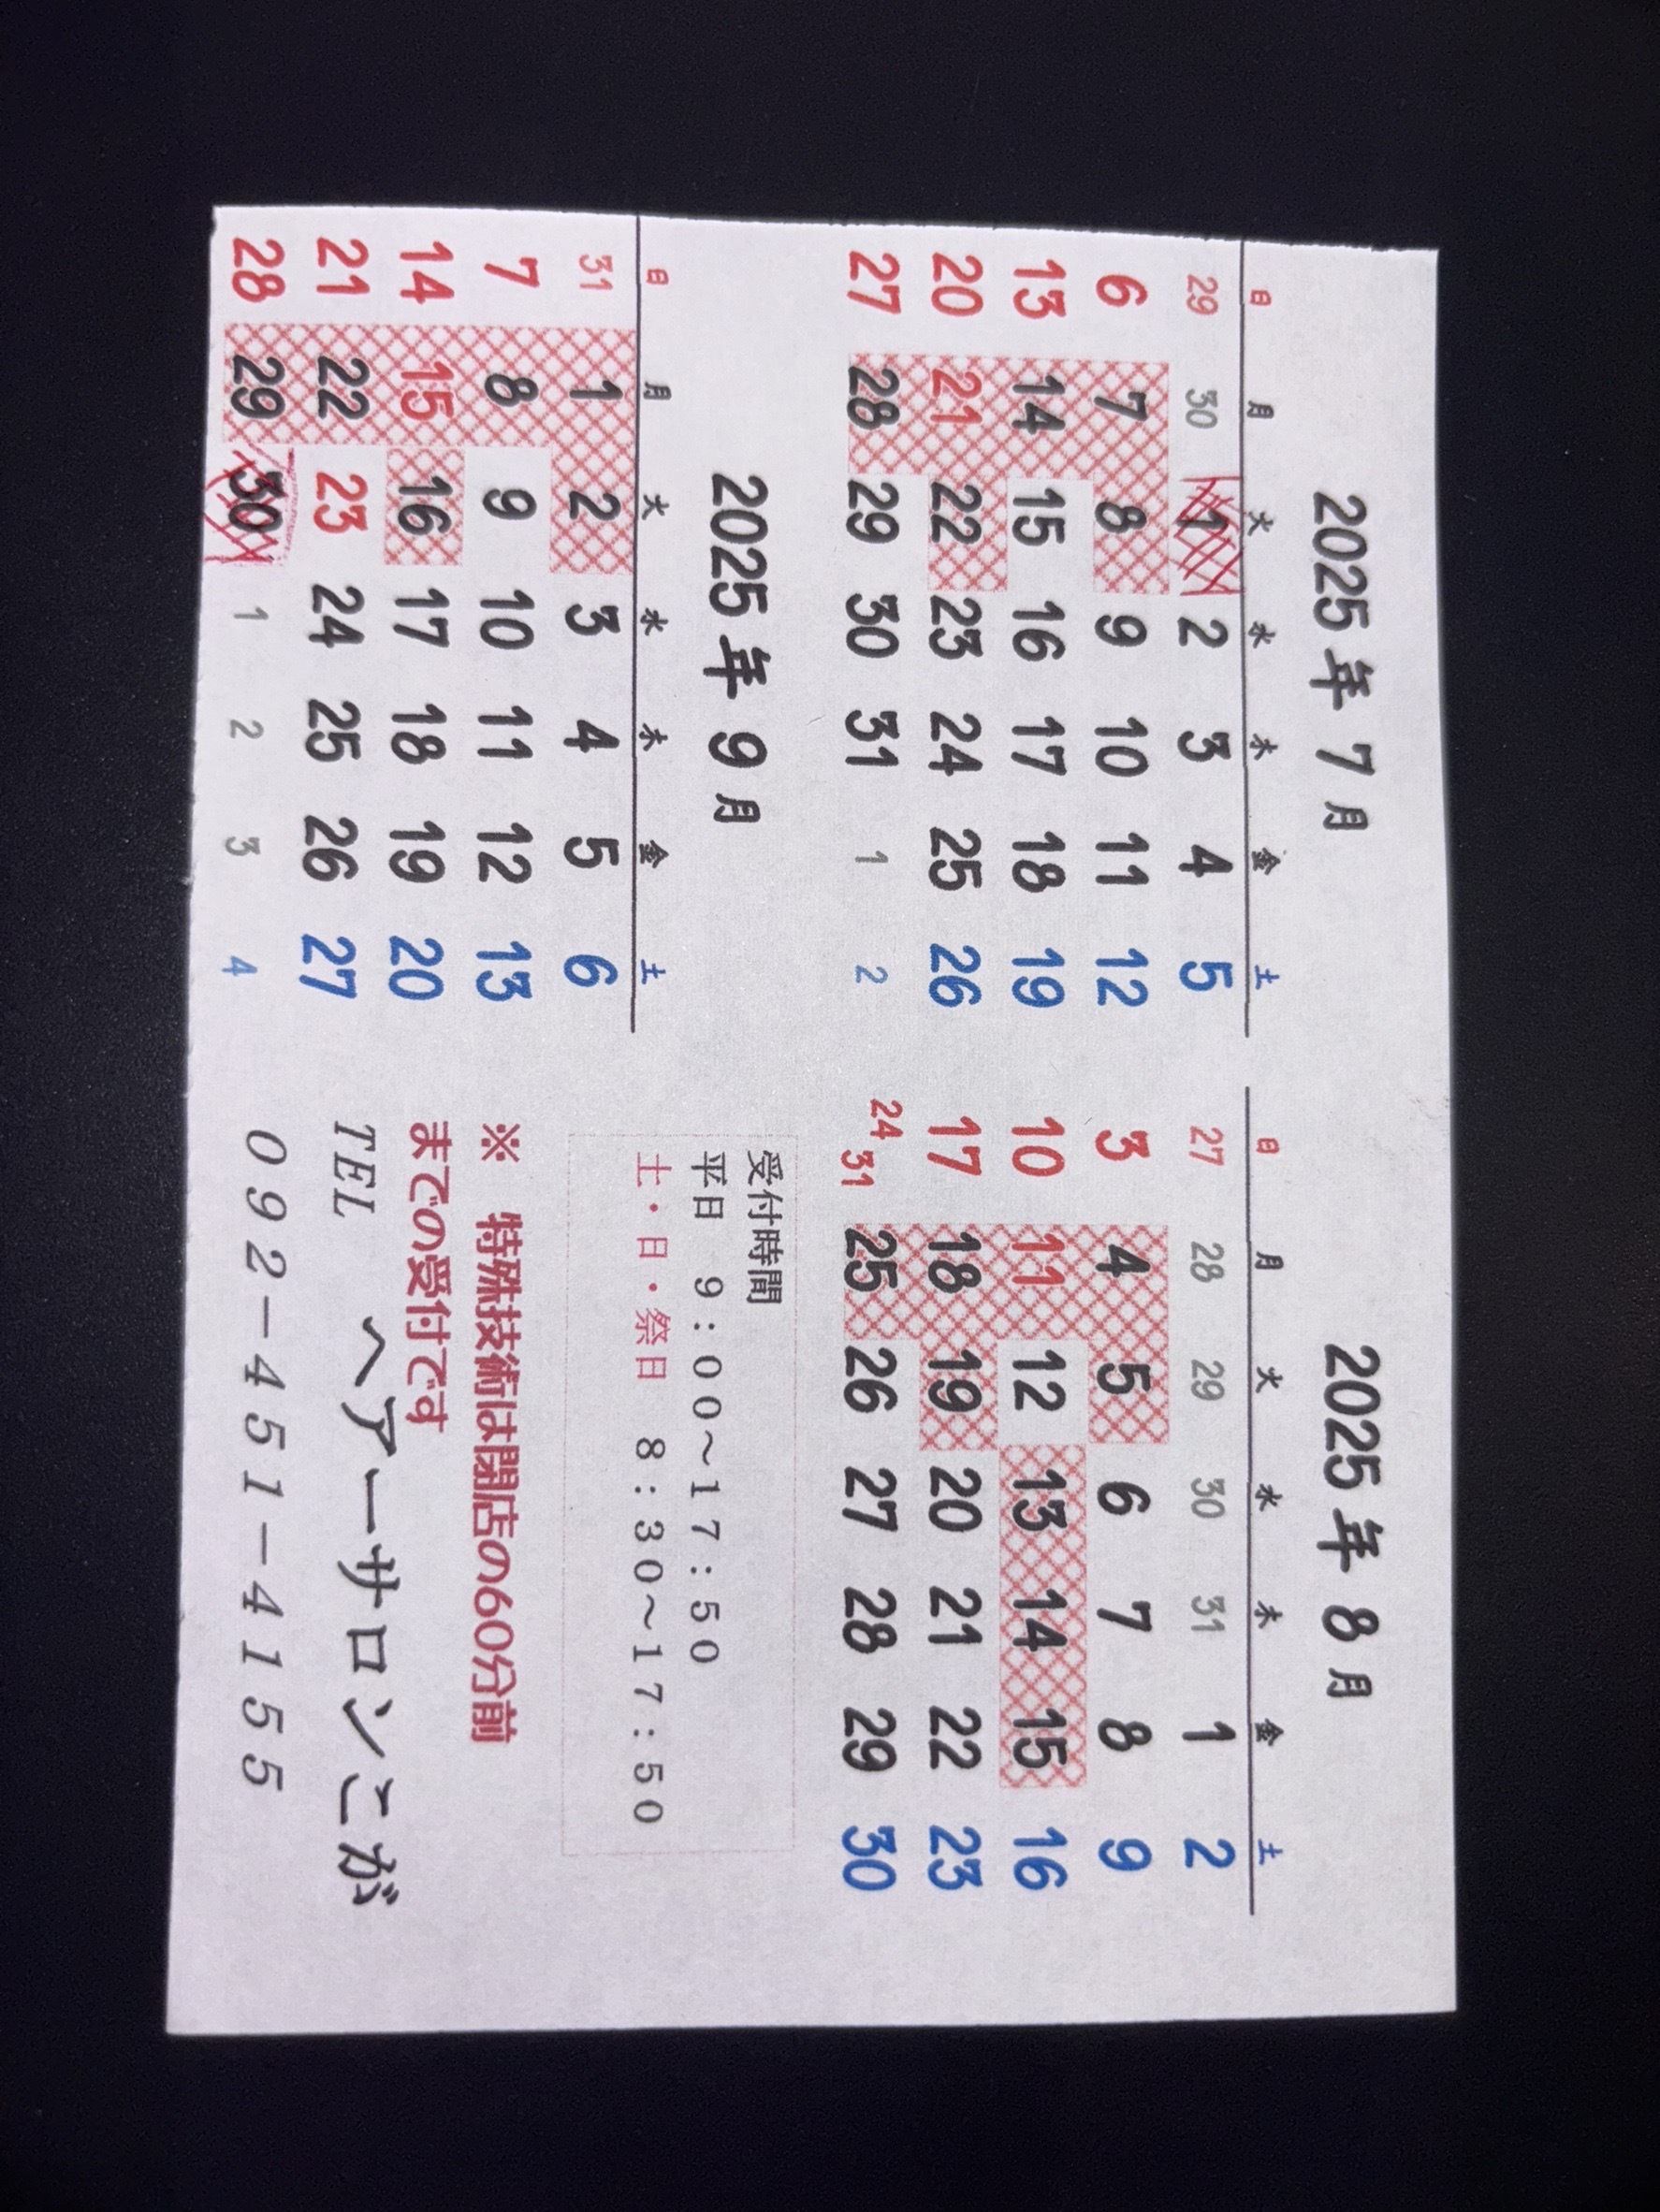 2025年 7月
日 月 火 水 木 金 土
29 30 1 2 3 4 5
6 7 8 9 10 11 12
13 14 15 16 17 18 19
20 21 22 23 24 25 26
27 28 29 30 31 1 2
2025年 8月
日 月 火 水 木 金 土
27 28 29 30 31 1 2
3 4 5 6 7 8 9
10 11 12 13 14 15 16
17 18 19 20 21 22 23
24 31 25 26 27 28 29 30
2025年 9月
日 月 火 水 木 金 土
31 1 2 3 4 5 6
7 8 9 10 11 12 13
14 15 16 17 18 19 20
21 22 23 24 25 26 27
28 29 30 1 2 3 4
受付時間
平日 9:00～17:50
土・日・祭日 8:30～17:50
※ 特殊技術は閉店の60分前
までの受付です
TEL ヘアーサロンこが
092-451-4155